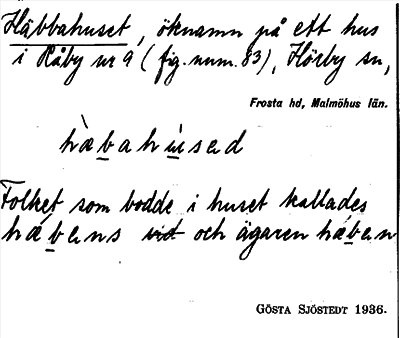 Häbbahuset, öknamn på ett hus
i Råby nr 9 (fig. num. 83), Hörby sn,
Frosta hd, Malmöhus län.
hàbahúsed
Folket som bodde i huset kallades
hábens vid och ägaren háben
GÖSTA SJÖSTEDT 1936.